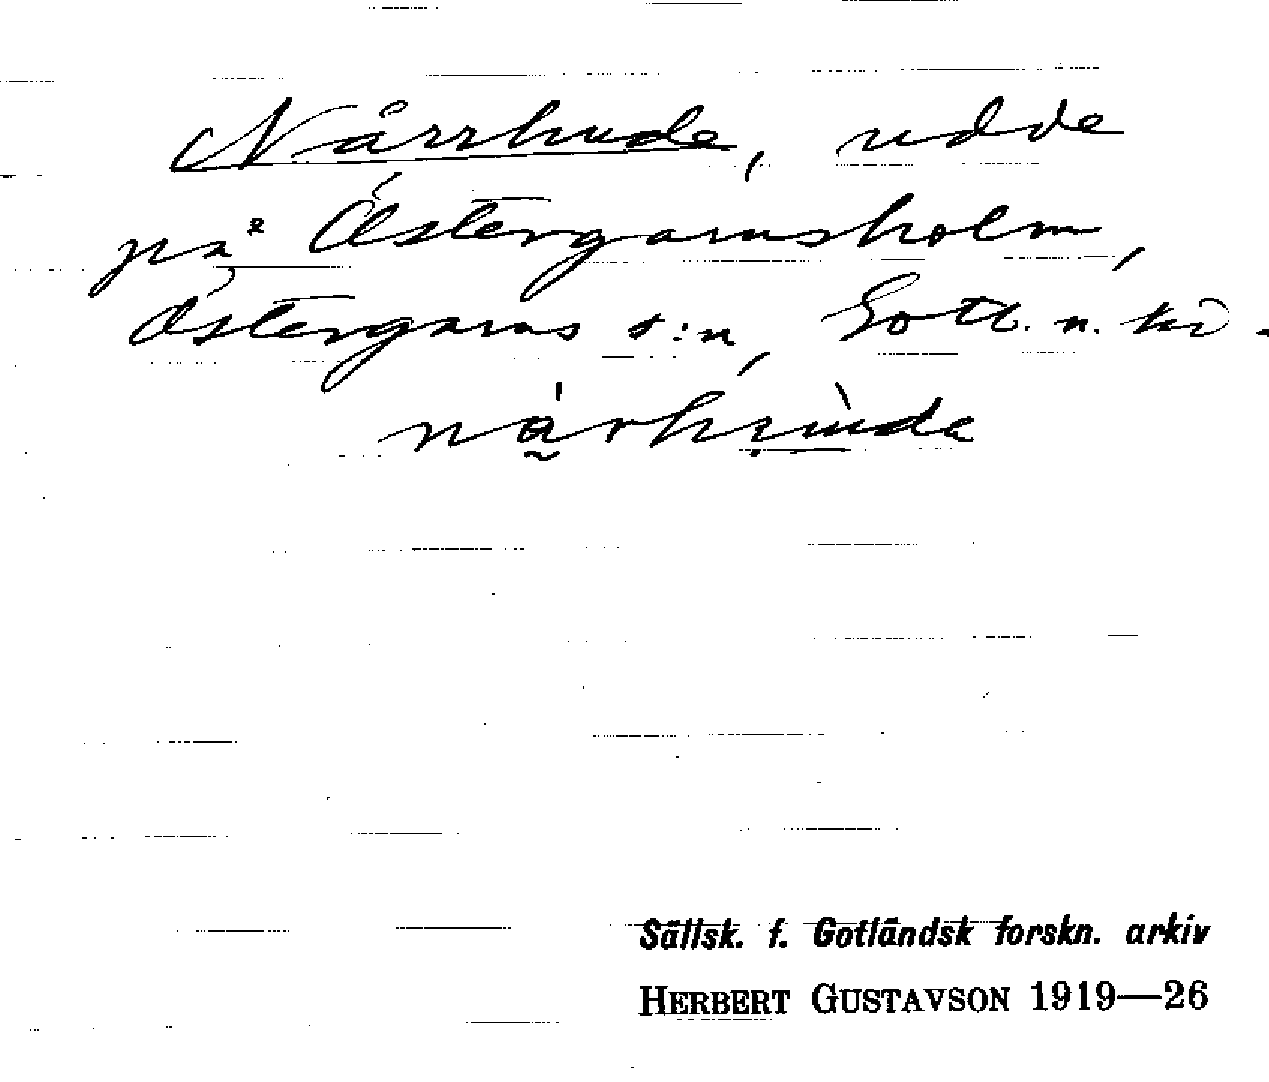 Nårrhude, udde
på Östergarnsholm,
Östergarns s:n, Gotl. n. hd.
Sällsk. f. Gotländsk forskn. arkiv
HERBERT GUSTAVSON 1919—26